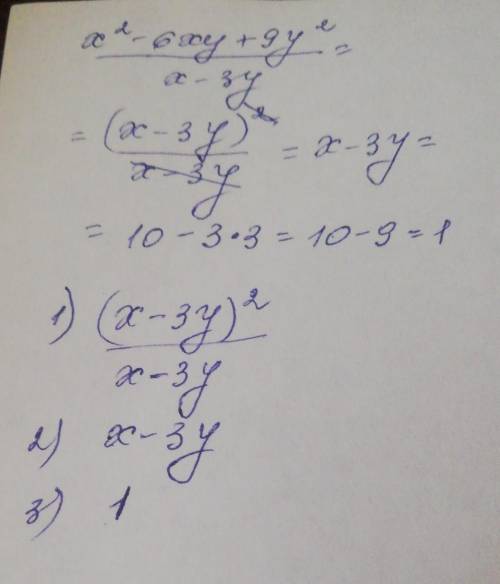 x² - 6xy + 9y² / x - 3y =
= (x - 3y)² / x - 3y = x - 3y =
= 10 - 3·3 = 10 - 9 = 1
1) (x - 3y)² / x - 3y
2) x - 3y
3) 1